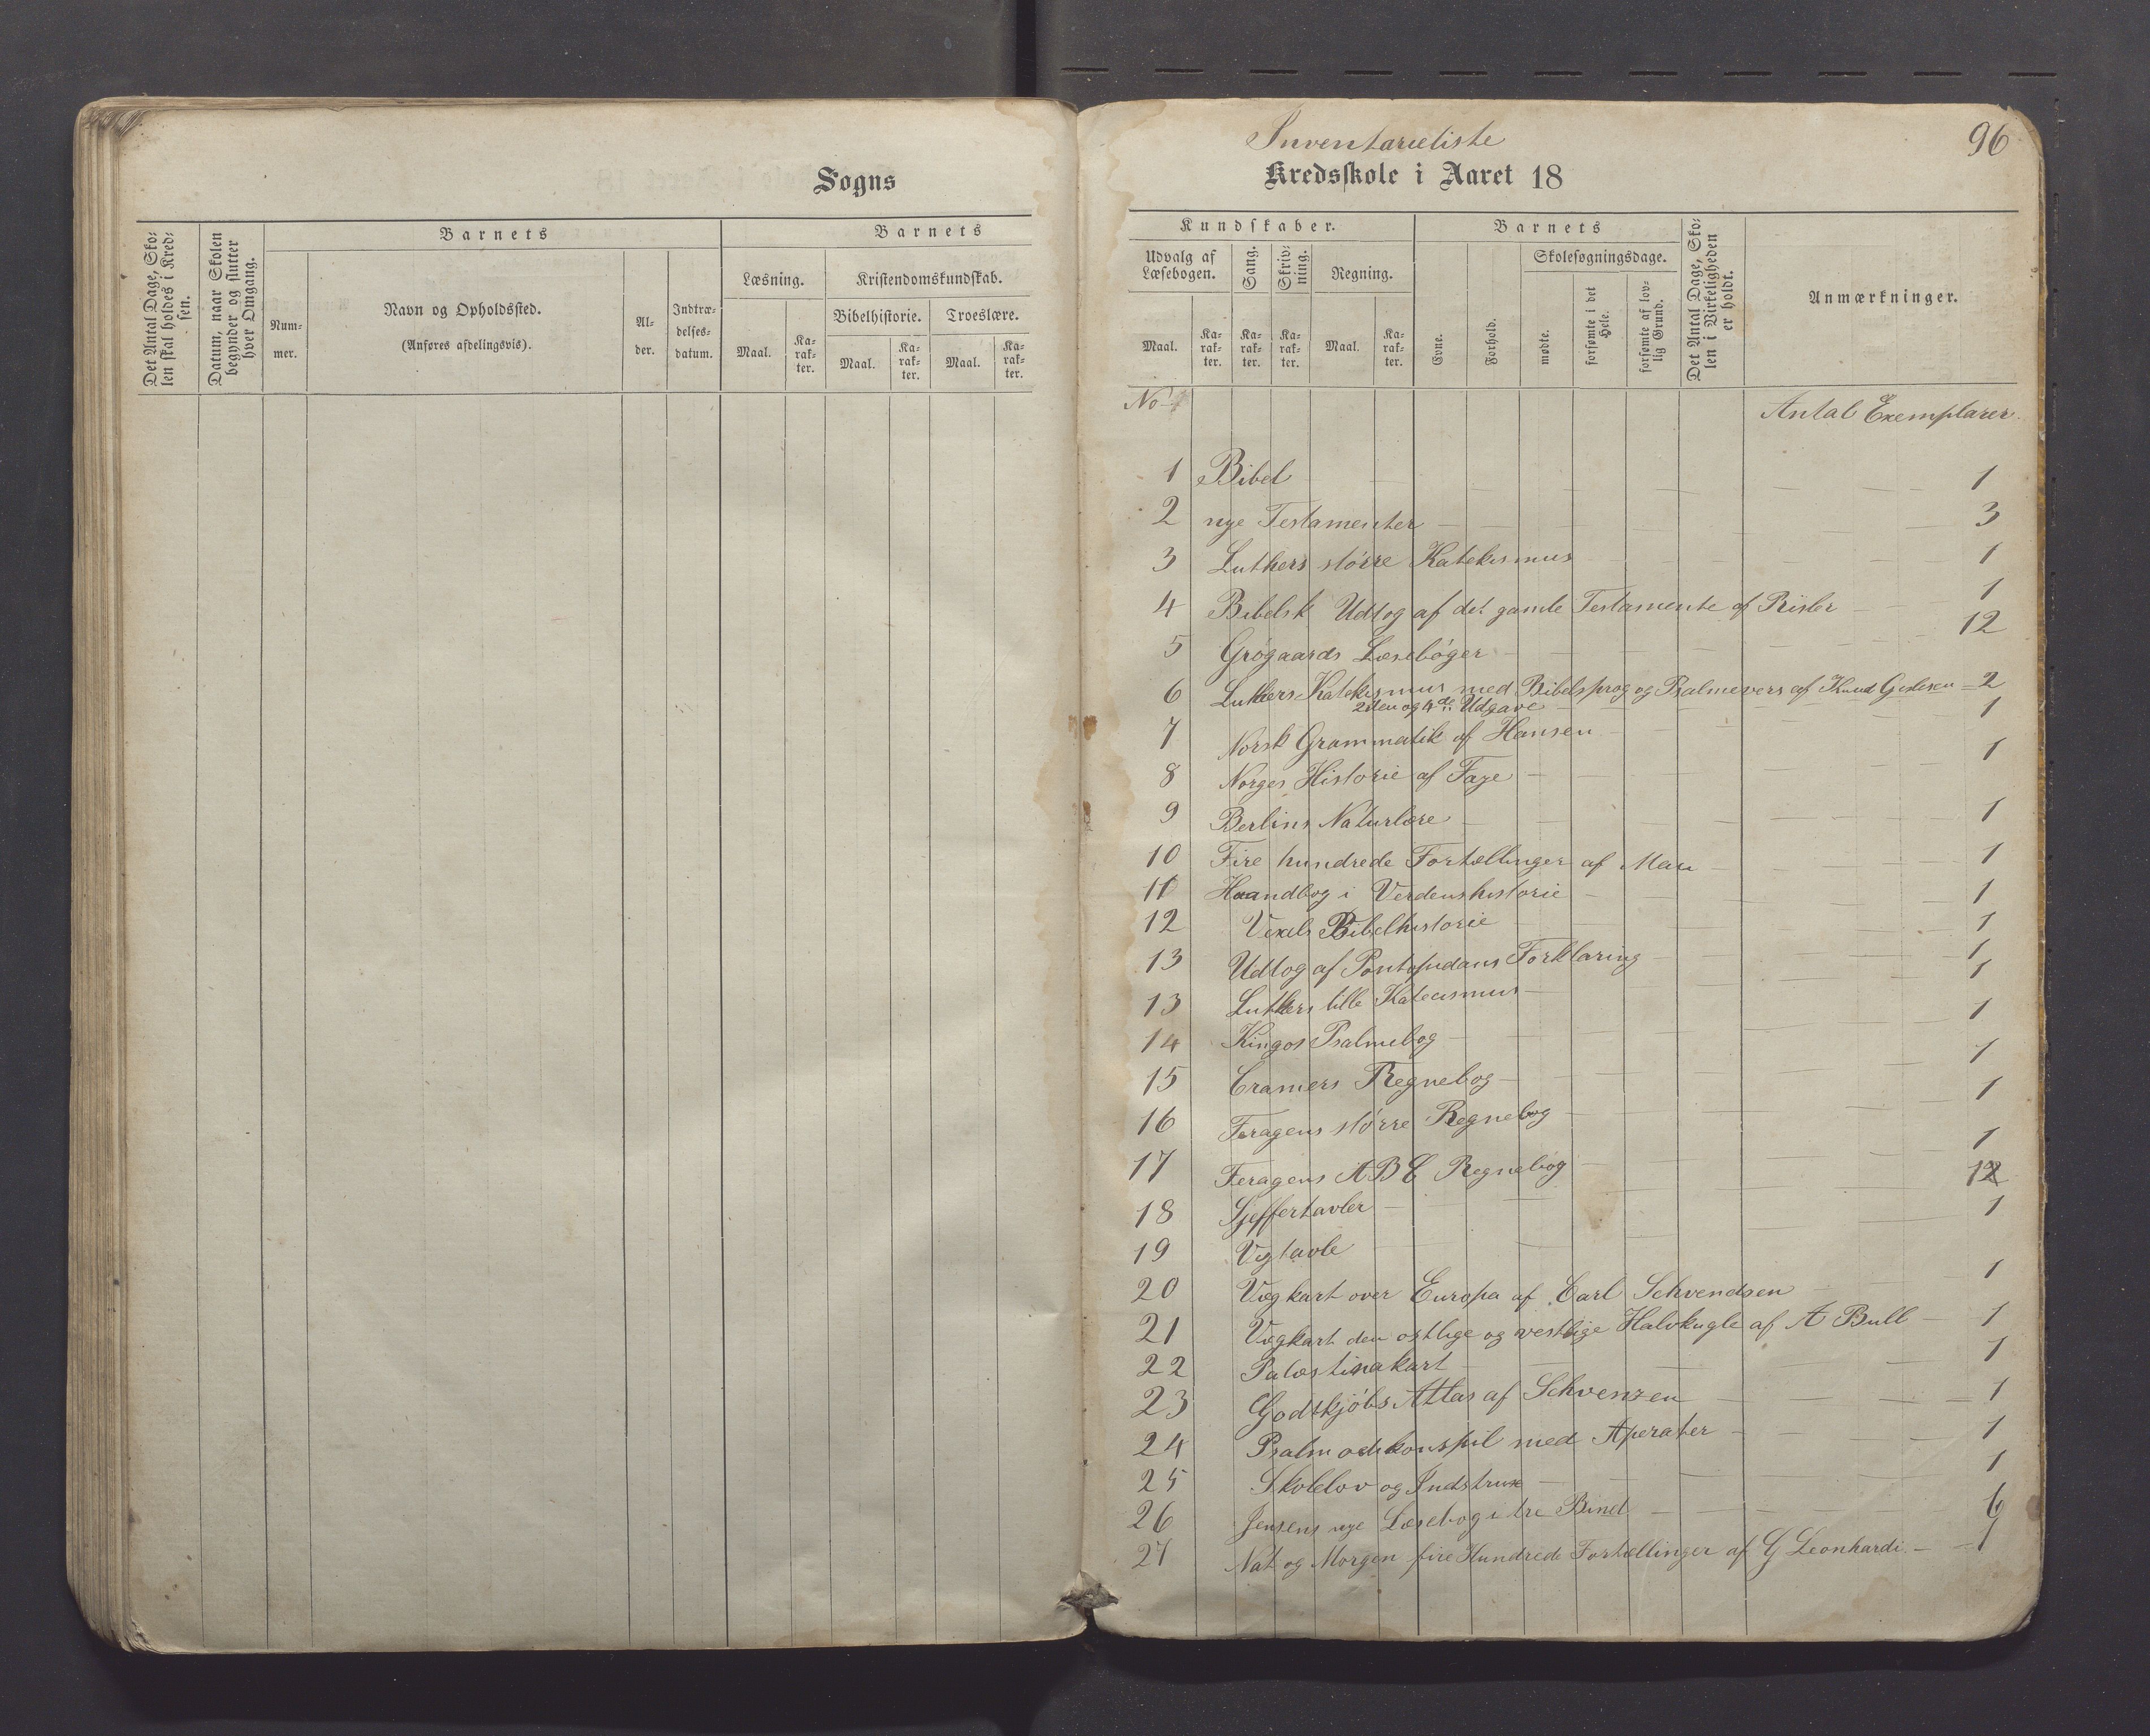 Sogns
Det Antal Dage, Sko-
len skal holdes i Kred-
sen.
Datum, naar Skolen
begynder og slutter
hver Omgang.
Barnets
Num-
mer.
Navn og Opholdssted.
(Anføres afdelingsvis).
Al-
der.
Indtræ-
delses-
datum.
Barnets
Læsning.
Kristendomskundskab.
Bibelhistorie.
Troeslære.
Maal.
Ka-
rak-
ter.
Maal.
Ka-
rak-
ter.
Maal.
Ka-
rak-
ter.
96
Inventarieliste
Kredsskole i Aaret 18
Kundskaber.
Udvalg af
Læsebogen.
Sang.
Skriv-
ning.
Regning.
Maal.
Ka-
rak-
ter.
Ka-
rak-
ter.
Ka-
rak-
ter.
Maal.
Ka-
rak-
ter.
Barnets
Evne.
Forhold.
Skolesøgningsdage.
mødte.
forsømte i det
Hele.
forsømte af lov-
lig Grund.
Det Antal Dage, Sko-
len i Virkeligheden
er holdt.
Anmærkninger.
No Antal Exemplarer.
1 Bibel 1
2 nye Testamenter 3
3 Luthers større Katekismus 1
4 Bibelsk Udtog af det gamle Testamente af Risler 1
5 Grøgaards Læsebøger 12
6 Luthers Katekismus med Bibelsprog og Psalmevers af Knud Geelesen 2
2den og 4de Udgave
7 Norsk Grammatik af Hansen 1
8 Norges Historie af Faye 1
9 Berlins Naturlære 1
10 Fire hundrede Fortællinger af Mau 1
11 Haandbog i Verdenshistorie 1
12 Vexels Bibelhistorie 1
13 Udtog af Pontopidans Forklaring 1
13 Luthers lille Katecismus 1
14 Kingos Psalmebog 1
15 Cramers Regnebog 1
16 Feragens større Regnebog 1
17 Feragens ABC Regnebog 1
18 Sjeffertavler 12
19 Vegtavle 1
20 Vægkart over Europa af Carl Schvendsen 1
21 Vægkart den østlige og vestlige Halvkugle af A Bull 1
22 Palæstinakart 1
23 Godtkjøbs Atlas af Schvensen 1
24 Psalmodikonspil med Aperater 1
25 Skolelov og Indstrux 1
26 Jensens nye Læsebog i tre Bind 6
27 Nat og Morgen fire Hundrede Fortællinger af G Leonhardi 1